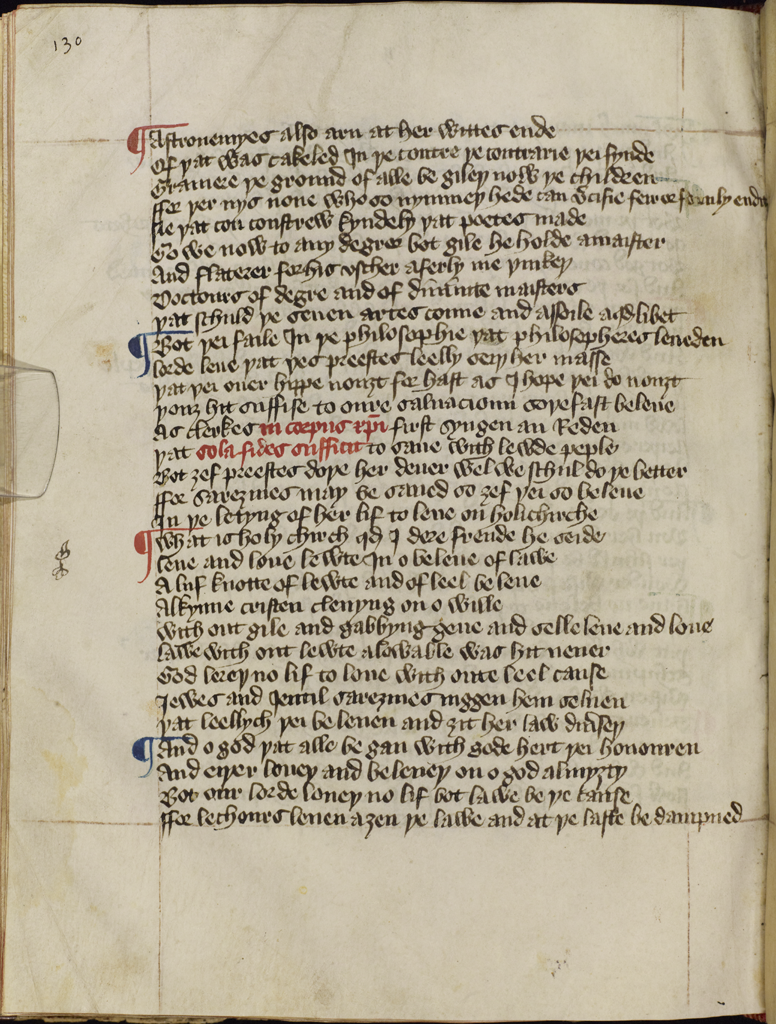 130
¶ Astronemyes also arn at her wittes ende
Of þat was cakeled In þe contre þe contrarie þei fynde
Gramere þe ground of alle be gileþ now þe children
ffor þer nys none who so nymmeþ hede can v̾sifie feir or formly endite
He þat con construw kyndely þat poetes made
Go we now to any degree bot gile he holde a maister
And flaterer for his vscher a ferly me þinkeþ
Doctours of degre and of diuinite maisters
þat schuld þe seuen artes conne and assoile a qdlibet
¶ Bot þei faile In þe philosophie þat philosopheres leueden
lorde leue þat þes preestes leelly seyn her masse
þat þei ouer hippe nouȝt for hast as I hope þei do nouȝt
þouȝ hit suffise to oure saluacioun soþefast beleue
As clerkes in corpus xp̄i first syngen an Reden
þat sola fides sufficit to saue with lewde peple
Bot ȝef preestes doþe her deuer wel we schul do þe better
ffor Sareȝines may be saued so ȝef þei so beleue
In þe letyng of her lif to leue on holichirche
¶ What is holy chirch qd I dere frende he seide
leue and loue lewte In o beleue of lawe
A luf knotte of lewte and of leel beleue
Alkynne cristen clenyng on o wille
with out gile and gabbyng geue and selle leue and loue
lawe with out lewte alowable was hit neuer
God lereþ no lif to loue with oute leel cause
Jewes and Jentil Sareȝines iuggen hem seluen
þat leellych þei be leuen and ȝit her law diuiseþ
¶ And o god þat alle be gan with gode hert þei honouren
And eiþer loueþ and beleueþ on o god almyȝty
Bot our lorde loueþ no lif bot lawe be þe cause
ffor lechours leuen aȝen þe lawe and at þe laste be dampned